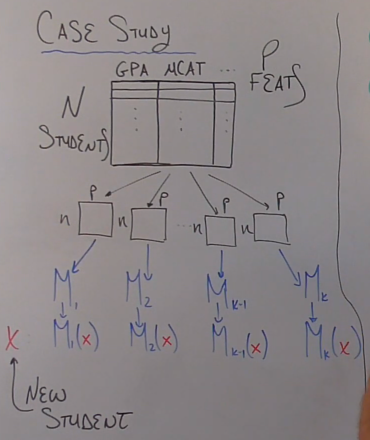 CASE STUDY
GPA MCAT ...
P FEATS
N STUDENTS
P P P P
n n ... n n
M1 M2 Mk-1 Mk
X M1(x) M2(x) Mk-1(x) Mk(x)
NEW
STUDENT